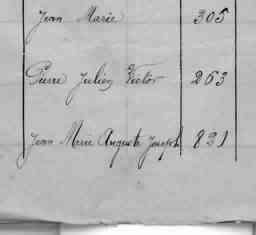 Jean Marie 305
Pierre Julien Victor 263
Jean Marie Auguste Joseph 831